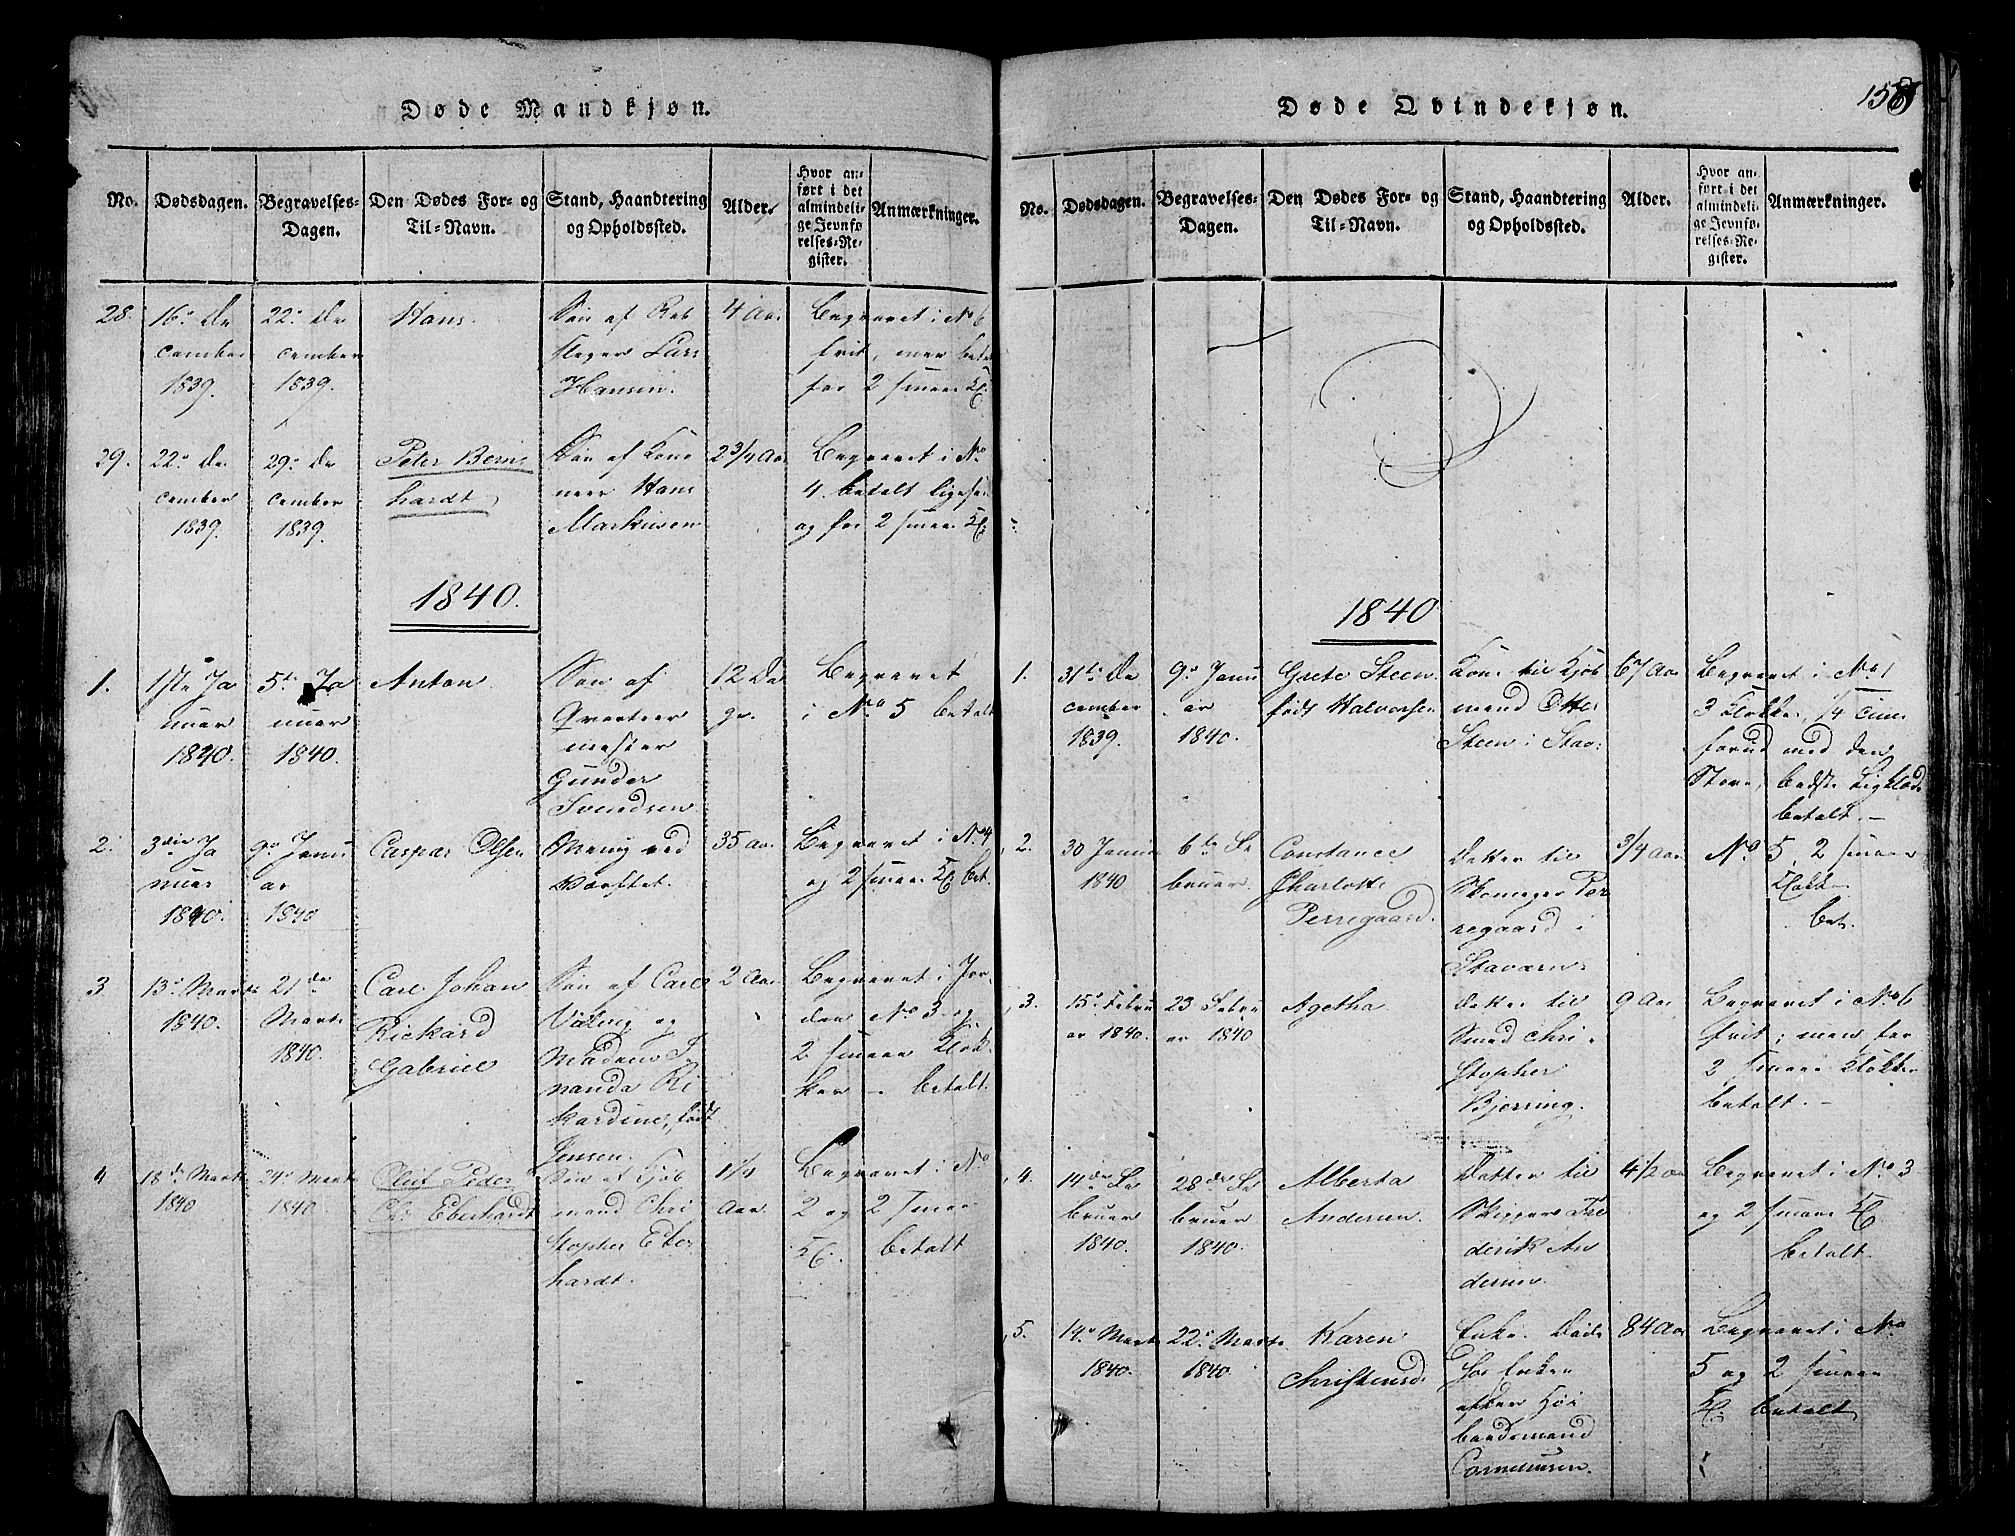 Døde Mandkjøn.
No.
Dødsdagen.
Begravelses-
Dagen.
Den Dødes For- og
Til-Navn.
Stand, Haandtering
og Opholdssted.
Alder.
Hvor an-
ført i det
almindeli-
ge Jevnfø-
relses-Re-
gister.
Anmærkninger.
28
16. De
cember
1839.
22. De
cember
1839.
Hans.
Søn af Reb
slager Lars
Hansen.
4 Aar
Begravet i No 6
frit, men betalt
for 2 smaae Kl.
29.
22. De
cember
1839.
29. De
cember
1839.
Peter Bern
hardt
Søn af
Hans
Markusen
2 3/4 Aar
Begravet i No
4. betalt ligesaa
og for 2 smaae Kl.
1840.
1.
1ste Ja
nuar
1840.
5te Ja
nuar
1840.
Anton.
Søn af
Qvarteer
mester
Gunder
Svendsen
12 Da
ge.
Begravet
i No 5 betalt
2.
3die Ja
nuar
1840.
9. Janu
ar
1840
Caspar Olsen
ved
Værftet.
35 Aar
Begravet i No 4
og 2 smaae Kl. bet.
3
13. Marts
1840.
21de
Marts
1840.
Carl Johan
Rickard
Gabriel
Søn af Carl
og
Madam
Ri
kardine, født
Jensen.
2 Aar
Begravet i Jor
den No 3 og
2 smaae Klok
ker – betalt.
4
18de Marts
1840
24. Marts
1840.
Oluf Peder
Chr. Eberhardt
Søn af Kjøb
mand Chri
stopher Eber
hardt.
1 1/4
Aar.
Begravet i No
2 og 2 smaae
Kl. betalt
158
Døde Qvindekjøn.
No.
Dødsdagen.
Begravelses-
Dagen.
Den Dødes For- og
Til-Navn.
Stand, Haandtering
og Opholdssted.
Alder.
Hvor an-
ført i det
almindeli-
ge Jevnfø-
relses-Re-
gister.
Anmærkninger.
1840
1.
31te De
cember
1839.
9. Janu
ar
1840.
Grete Steen
født Halvorsen
Kone til Kjøb
mand Otter
Steen i Stav:
67 Aar
Begravet i No 1
3 Klokker, 1/4 Time
forud med den
Store, bedste Ligklæde
betalt. –
2.
30 Januar
1840
6te Fe
bruar
Constance
Charlotte
Perregaard.
Datter til
Per
regaard i
Staværn
3/4 Aar
No 5, 2 smaae
Klokker
bet.
3.
15. Febru
ar 1840.
23 Febru
ar 1840
Agetha
Datter til
Smed Chri
stopher
Bjerring.
9 Aar
Begravet i No 6
frit; men for
2 smaae Klokker
betalt. –
4.
14de Fe
bruar
1840.
28de Fe
bruar
1840.
Alberta
Andersen.
Datter til
Skipper Fre
derik An
dersen
4 1/2 Aar
Begravet i No 3
og 2 smaae Kl.
betalt.
5.
14. Marts
1840.
22. Marts
1840.
Karen
Christensd.
Enke. Døde
hos Enken
efter
mand
Cornelüsen.
84 Aar
Begravet i No
5 og 2 smaae
Kl. betalt